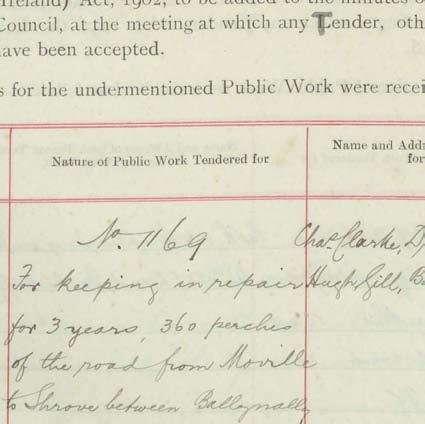 Ireland) Act, 1902, to be added to the minutes o
Council, at the meeting at which any Tender, oth
have been accepted.
s for the undermentioned Public Work were recei
Nature of Public Work Tendered for
Name and Addr
for
No. 1169
For keeping in repair
for 3 years, 360 perches
of the road from Moville
to Shrove between Ballynally
Chas. Clarke, D
Hugh Gill, Ba